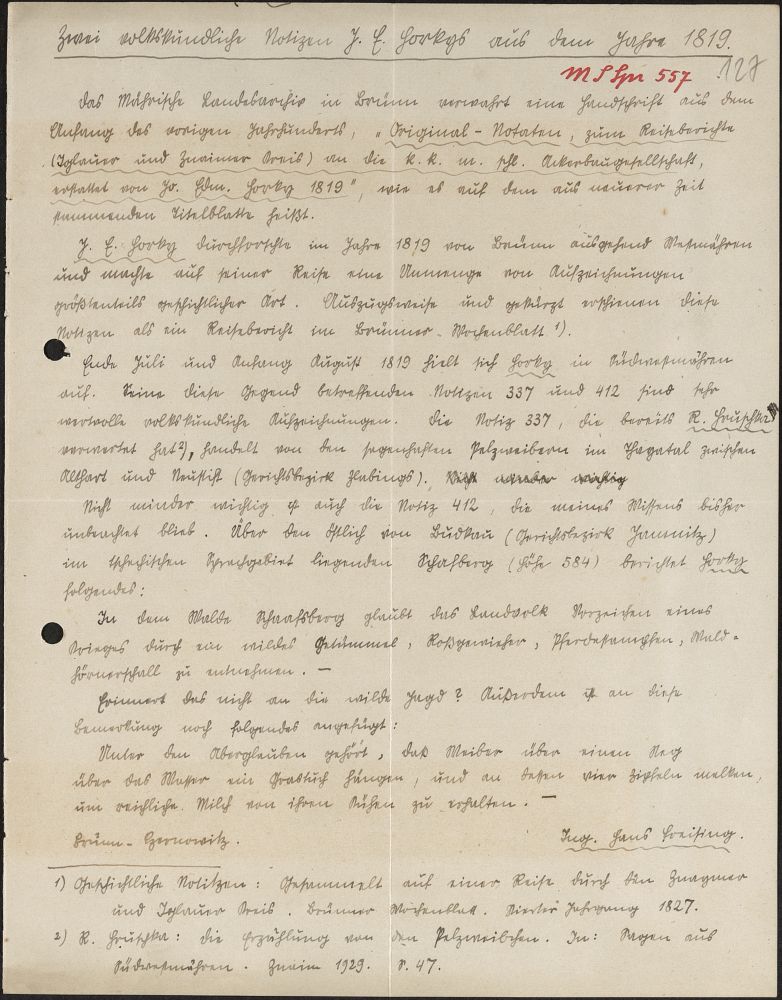 Zwei volkskundliche Notizen J. E. Horkys aus dem Jahre 1819.
127
Das Mährische Landesarchiv in Brünn verwahrt eine Handschrift aus dem
Anfang des vorigen Jahrhunderts, „Original-Notaten, zum Reiseberichte
(Iglauer und Znaimer Kreis) an die k. k. m. schl. Ackerbaugesellschaft,
erstattet von Jo. Edm. Horky 1819", wie es auf dem aus neuerer Zeit
stammenden Titelblatte heißt.
J. E. Horky durchforschte im Jahre 1819 von Brünn ausgehend Westmähren
und machte auf seiner Reise eine Unmenge von Aufzeichnungen
größtenteils geschichtlicher Art. Auszugsweise und gekürzt erschienen diese
Notizen als ein Reisebericht im Brünner-Wochenblatt 1).
Ende Juli und Anfang August 1819 hielt sich Horky in Südwestmähren
auf. Seine diese Gegend betreffenden Notizen 337 und 412 sind sehr
wertvolle volkskundliche Aufzeichnungen. Die Notiz 337, die bereits R. Hruschka
verwertet hat 2), handelt von den sagenhaften Pelzweibern im Thayatal zwischen
Althart und Neustift (Gerichtsbezirk Zlabings).
Nicht minder wichtig ist auch die Notiz 412, die meines Wissens bisher
unbeachtet blieb. Über den östlich von Budkau (Gerichtsbezirk Jamnitz)
im tschechischen Sprachgebiet liegenden Schafberg (Höhe 584) berichtet Horky
folgendes:
In dem Walde Schaafsberg glaubt das Landvolk Vorzeichen eines
Krieges durch ein wildes Getümmel, Roßgewieher, Pferdestampfen, Wald-
hörnerschall zu entnehmen. —
Erinnert das nicht an die wilde Jagd? Außerdem ist an diese
Bemerkung noch folgendes angefügt:
Unter den Aberglauben gehört, daß Weiber über einen Steg
über das Wasser ein Grastuch hängen, und an dessen vier Zipfeln melken,
um reichliche Milch von ihren Kühen zu erhalten. —
Brünn-Czernowitz. Ing. Hans Freising.
1) Geschichtliche Notitzen: Gesammelt auf einer Reise durch den Znaymer
und Iglauer Kreis. Brünner Wochenblatt. Vierter Jahrgang 1827.
2) R. Hruschka: Die Erzählung von den Pelzweibchen. In: Sagen aus
Südwestmähren. Znaim 1929. S. 47.